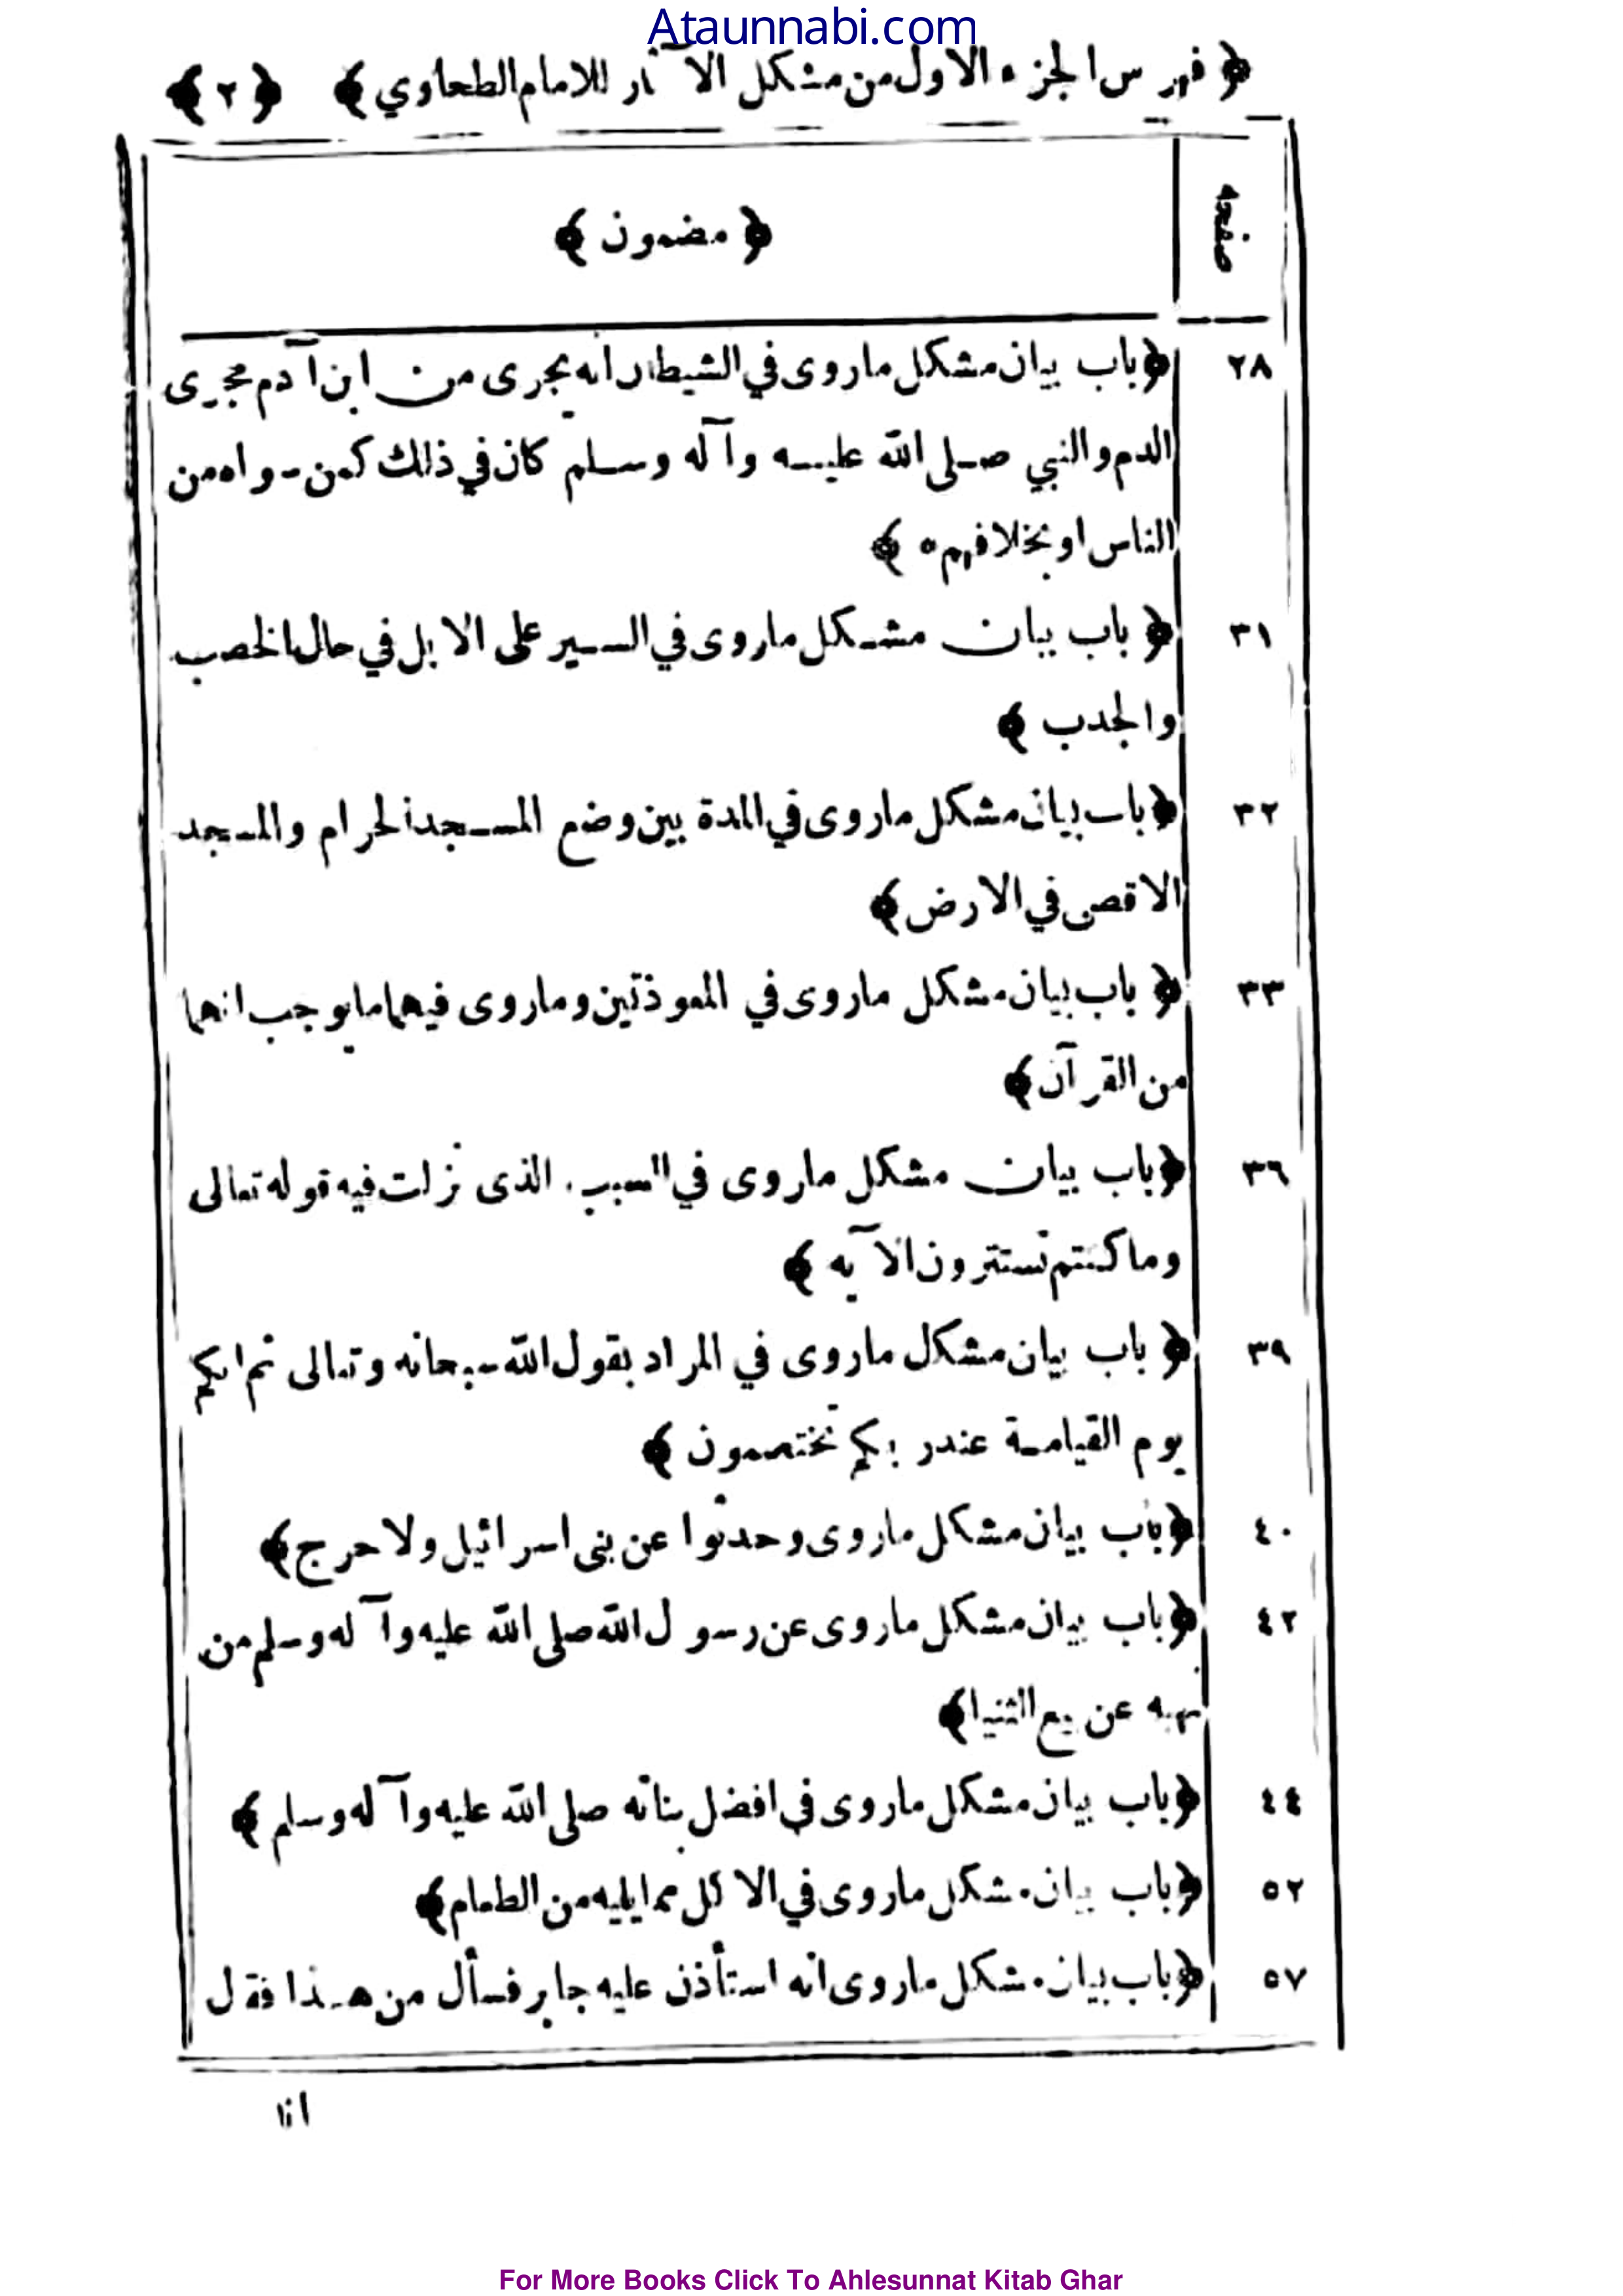 Ataunnabi.com
﴿ فهرس الجزء الاول من مشكل الآثار للامام الطحاوي ﴾ ﴿ ٢ ﴾
صفحه ﴿ مضمون ﴾
٢٨ ﴿ باب بيان مشكل ماروى في الشيطان انه يجرى من ابن آدم مجرى
الدم والنبي صلى الله عليه وآله وسلم كان في ذلك كمن سواه من
الناس او بخلافهم ه ﴾
٣١ ﴿ باب بيان مشكل ماروى في السير على الابل في حال الخصب
والجدب ﴾
٣٢ ﴿ باب بيان مشكل ماروى في المدة بين وضع المسجد الحرام والمسجد
الاقصى في الارض ﴾
٣٣ ﴿ باب بيان مشكل ماروى في المعوذتين وماروى فيهما ما يوجب انهما
من القرآن ﴾
٣٦ ﴿ باب بيان مشكل ماروى في السبب الذى نزلت فيه قوله تعالى
وما كنتم تستترون الآيه ﴾
٣٩ ﴿ باب بيان مشكل ماروى في المراد بقول الله سبحانه وتعالى ثم انكم
يوم القيامة عند ربكم تختصمون ﴾
٤٠ ﴿ باب بيان مشكل ماروى وحدثوا عن بنى اسرائيل ولا حرج ﴾
٤٢ ﴿ باب بيان مشكل ماروى عن رسول الله صلى الله عليه وآله وسلم من
نهيه عن بيع الثنيا ﴾
٤٤ ﴿ باب بيان مشكل ماروى في افضل بناته صلى الله عليه وآله وسلم ﴾
٥٢ ﴿ باب بيان مشكل ماروى في الاكل مما يليه من الطعام ﴾
٥٧ ﴿ باب بيان مشكل ماروى انه استأذن عليه جابر فسأل من هذا فقال
انا
For More Books Click To Ahlesunnat Kitab Ghar